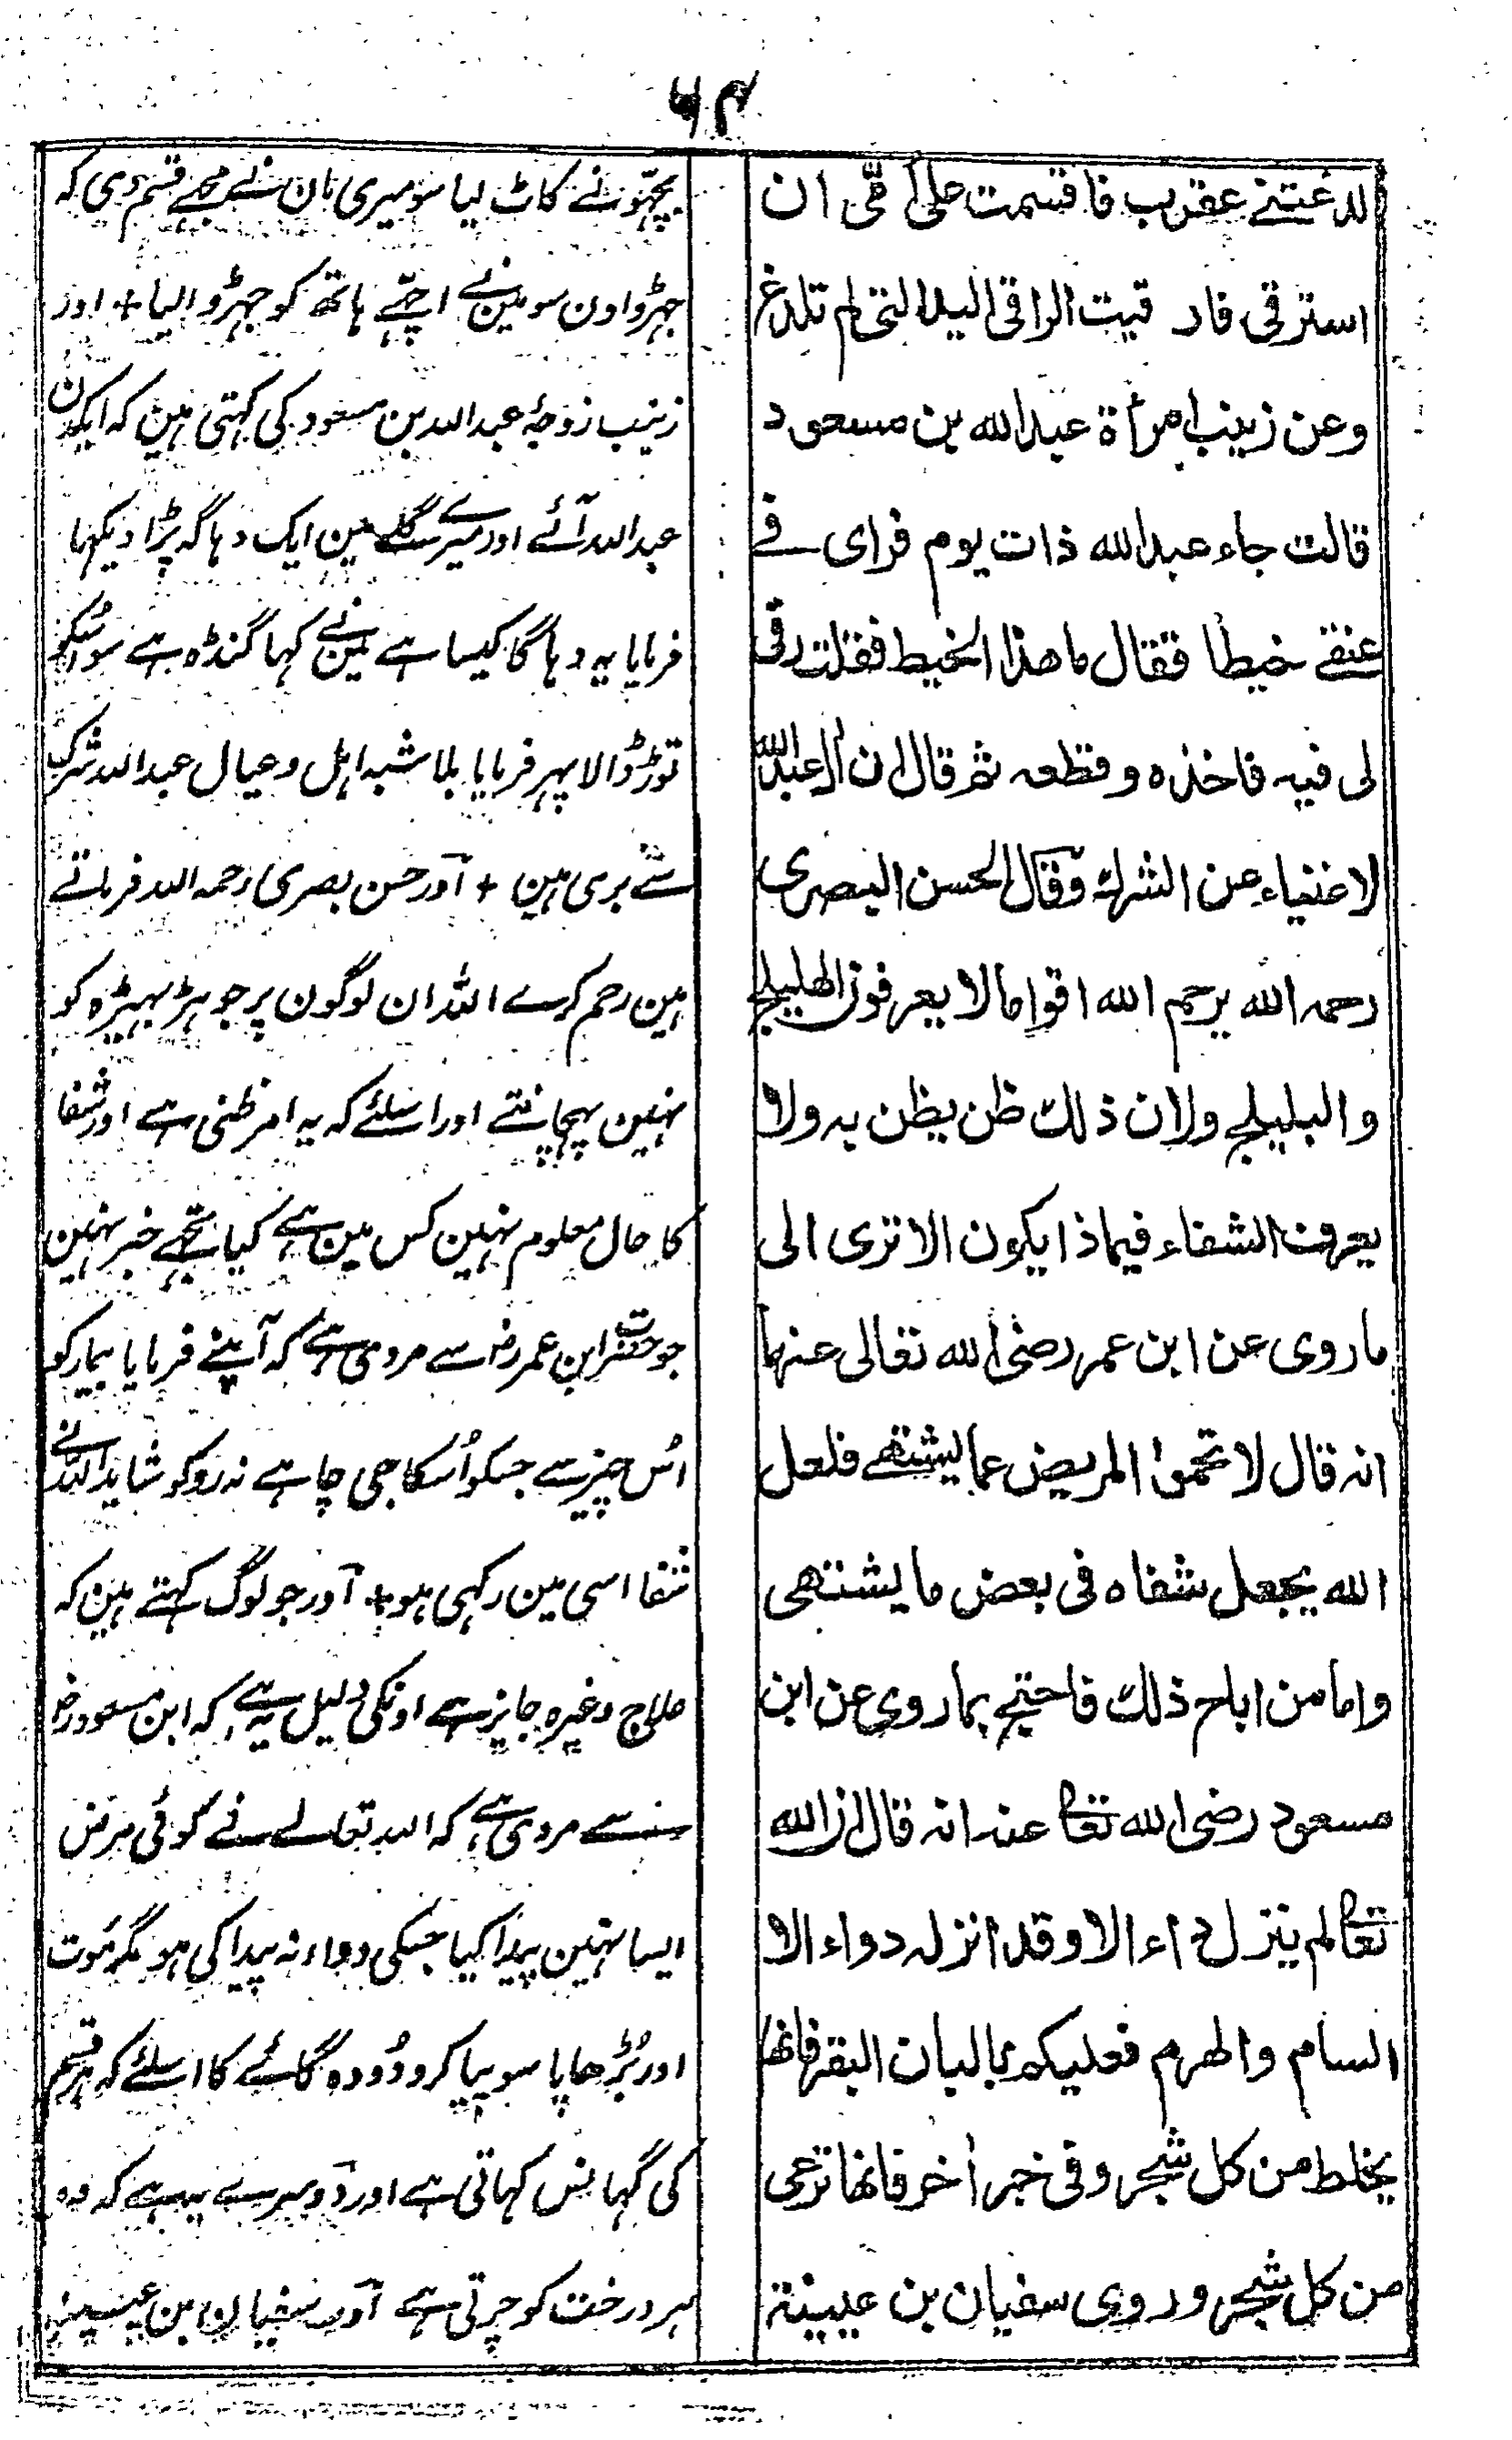 ۵۴
لدغتنے عقرب فاقسمت علی اُمّی ان
استرقی فار قیت الراقی الید التی لم تلدغ
وعن زینب امرأة عبدالله بن مسعود
قالت جاء عبدالله ذات یوم فرای فے
عنقے خیطا فقال ما هذا الخیط فقلت رقی
لی فیه فاخذه وقطعه ثم قال ان اٰل عبدالله
لاغنیاء عن الشرك وقال الحسن البصری
رحمه الله یرحم الله اقواما لا یعرفون الهلیلج
والبلیلج ولان ذلك ظن یظن به ولا
یعرف الشفاء فیماذا یکون الا تری الی
ماروی عن ابن عمر رضی الله تعالی عنهما
انه قال لا تحموا المریض عما یشتهے فلعل
الله یجعل شفاه فی بعض ما یشتهی
واما من اباح ذلك فاحتج بماروی عن ابن
مسعود رضی الله تعا عنه انه قال ان الله
تعا لم ینزل داء الا وقد انزله دواء الا
السام والهرم فعلیکم بالبان البقر فانها
یخلط من کل شجر وفی خبر اٰخر فانها ترعی
من کل شجر وروی سفیان بن عیینة
بچھّو نے کاٹ لیا سو میری مان نے مجھے قسم دی کہ
جہڑواون سو مین نے اچھّے ہاتھ کو جہڑوالیا + اور
زینب زوجۂ عبداللہ بن مسعود کی کہتی ہین کہ ایکدن
عبداللہ آئے اور میرے گلے مین ایک دہاگہ پڑا دیکہا
فرمایا یہ دہاگا کیسا ہے مین نے کہا گنڈہ ہے سو اُسکو
توڑ ڈالا پہر فرمایا بلا شبہ اہل و عیال عبداللہ شرک
سے بری ہین + آور حسن بصری رحمہ اللہ فرماتے
ہین رحم کرے اللّٰہ ان لوگون پر جو ہڑ بہیڑہ کو
نہین پہچانتے اور اسلئے کہ یہ امر ظنی ہے اور شفا
کا حال معلوم نہین کس مین ہے کیا تجھے خبر نہین
جو حضرت ابن عمر رض سے مروی ہے کہ آپنے فرمایا بیمار کو
اُس چیز سے جسکو اُسکا جی چاہے نہ روکو شاید اللہ نے
شفا اسی مین رکہی ہو + آور جو لوگ کہتے ہین کہ
علاج وغیرہ جایز ہے اونکی دلیل یہ ہے کہ ابن مسعود رض
سے مروی ہے کہ اللہ تعالے نے کوئی مرض
ایسا نہین پیدا کیا جسکی دواء نہ پیدا کی ہو مگر مَوت
اور بُڑھاپا سو پیا کرو دُودہ گائے کا اسلئے کہ ہر قسم
کی گہانس کہاتی ہے اور دَوسرے یہہ ہے کہ وہ
ہر درخت کو چرتی ہے آور سفیان بن عیینہ